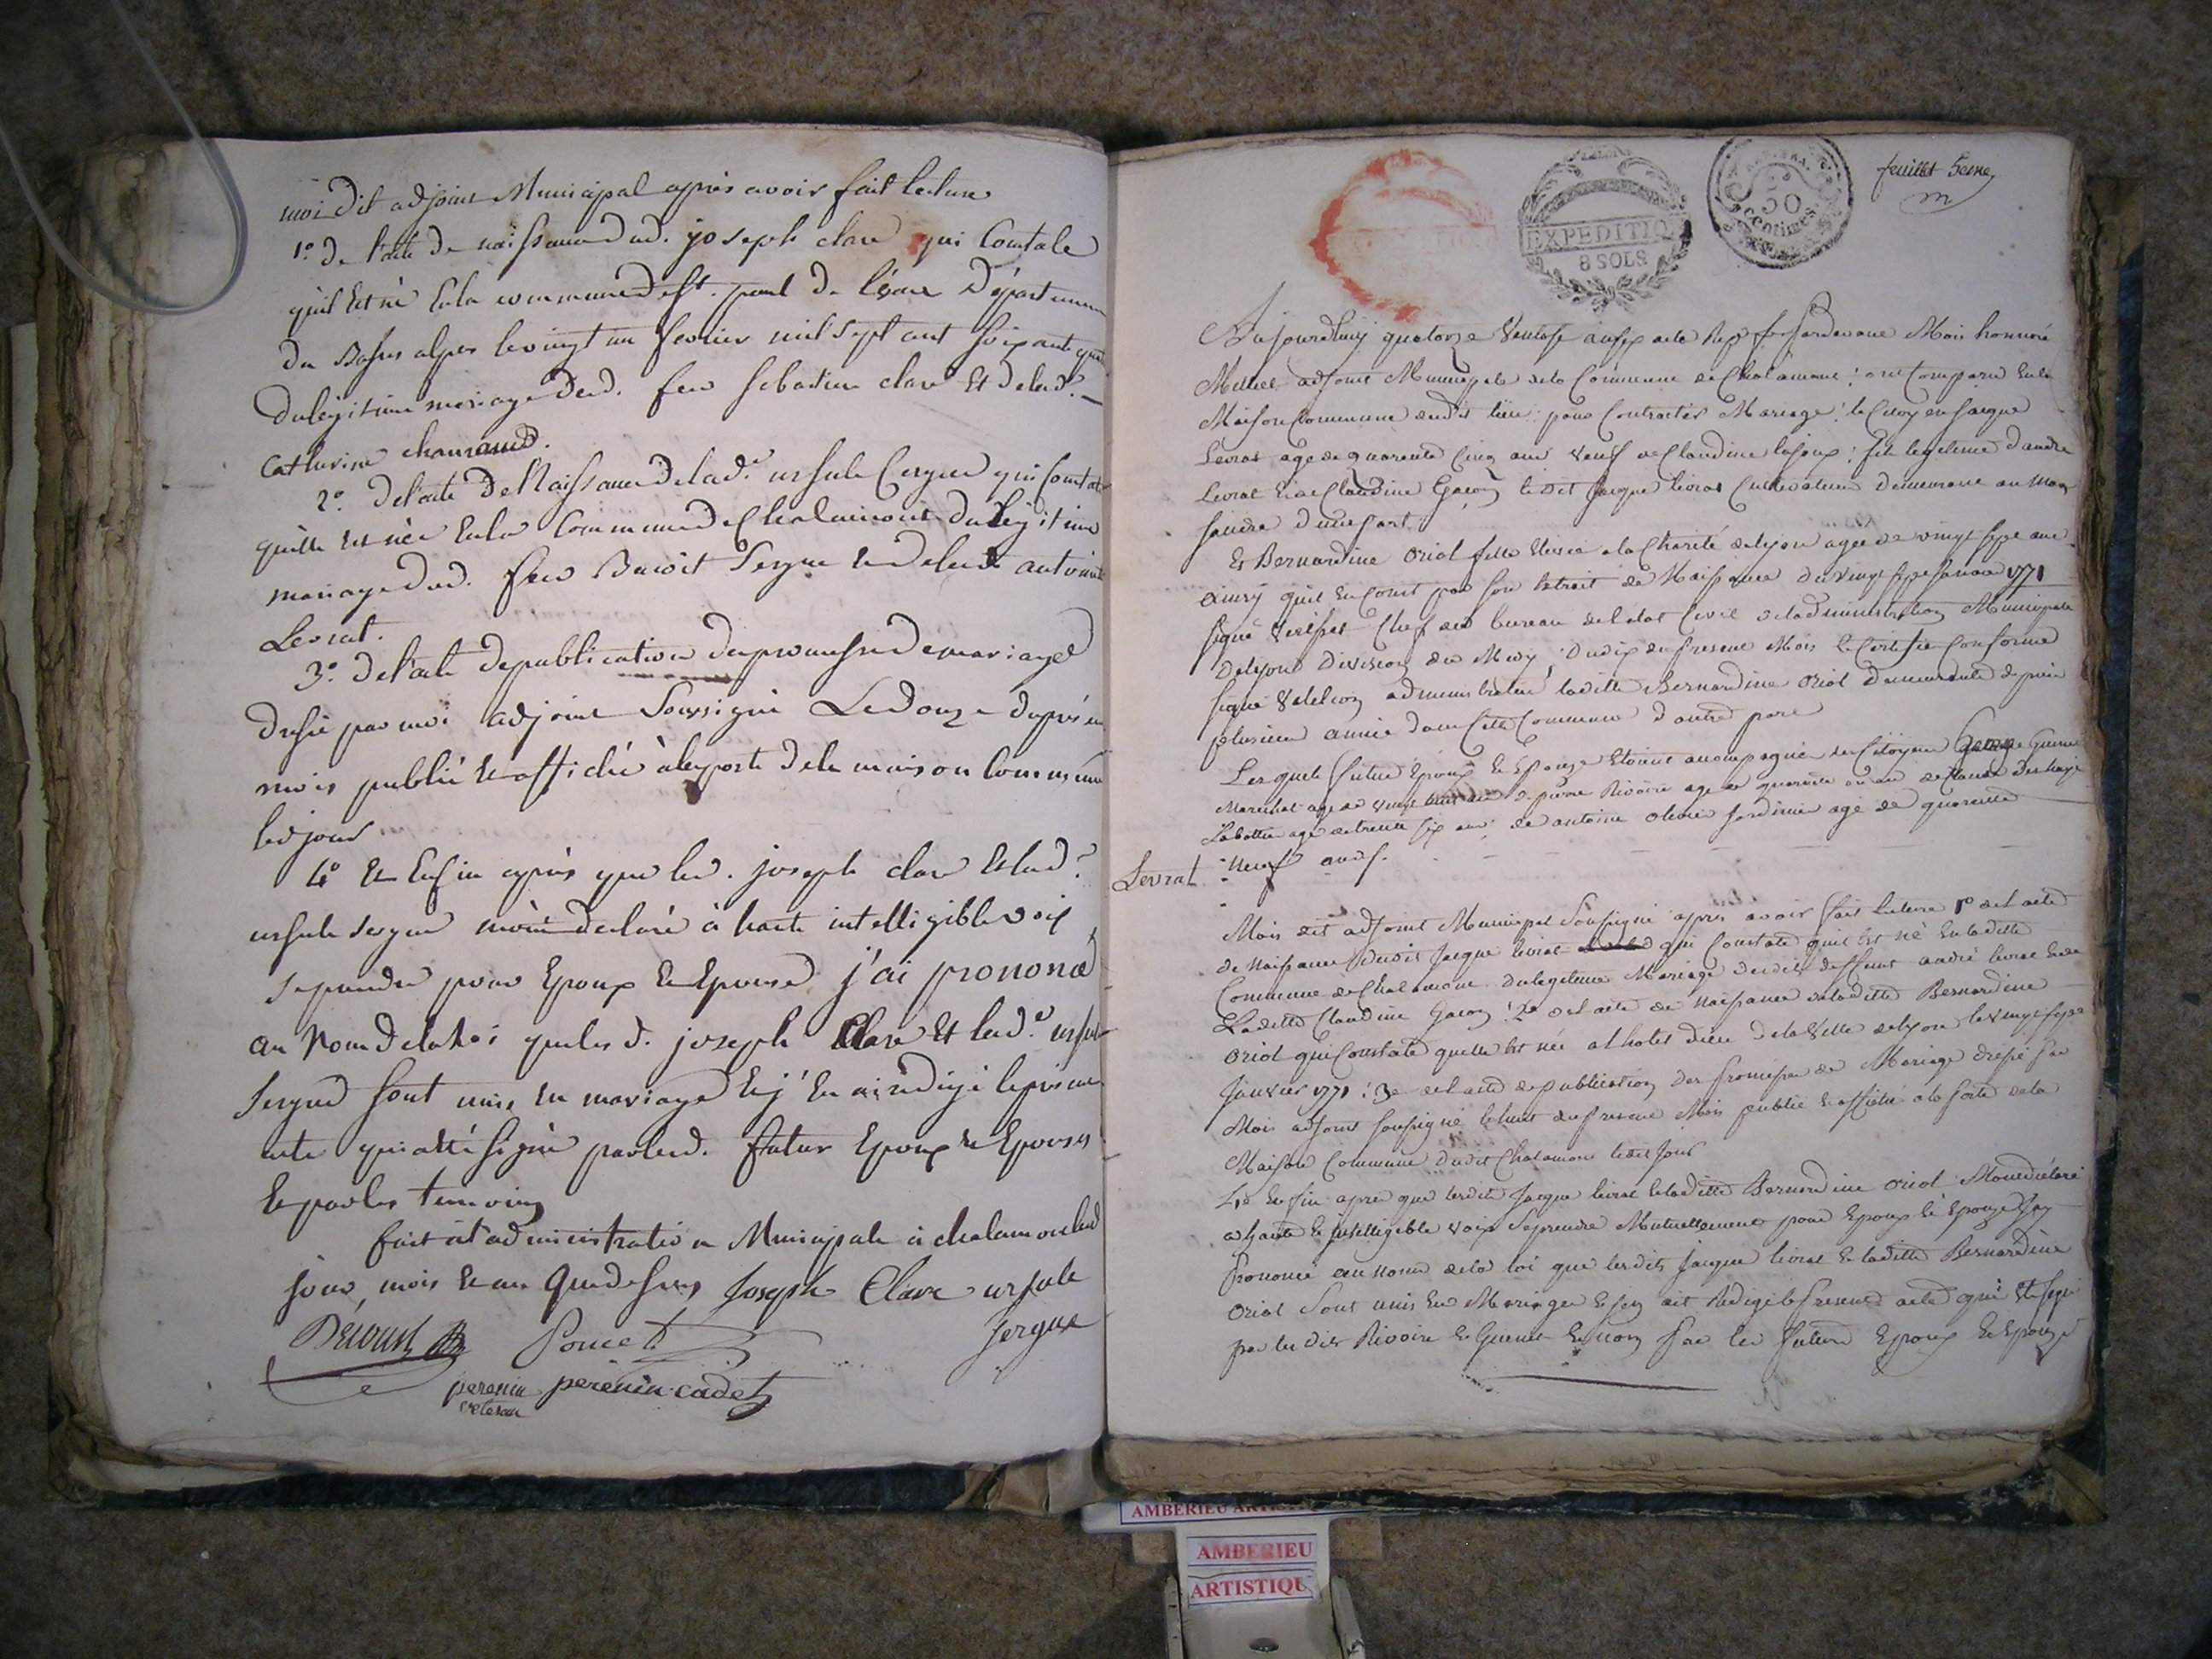 moi dit adjoint Municipal après avoir fait lecture
1º de l'acte de naissance dud. joseph clare qui Constate
quil Est né En la commune de St. paul de Département
du Basses alpes le vingt un fevrier mil sept cent soixante
du légitime mariage dud. feu sebastien clare Et de lad.e
Catherine
2º. de l'acte de Naissance de lad.e ursule Sergue qui Constate
quelle est née En la Commune de Chalamont du légitime
mariage dud. feu Benoit Sergue Et de lad.
Levrat.
3º. de l'acte de publication des promesses de mariage
dressé par moi adjoint Soussigné Le Douze du présent
mois publié Et affiché à la porte de la maison Commune
led jour
4º Et Enfin après que led. joseph clare Et lad.e
ursule sergue m'ont déclaré à haute intelligible voix
se prendre pour Epoux Et Epouse j'ai prononcé
au Nom de la Loi que les d. joseph Clare Et lad.e ursule
Sergue sont unis en mariage Et j'en ai rédigé le présent
acte qui a été signé par led. futur Epoux Et Epouse
Et par les temoins
fait à l'administration Municipale à chalamont led
jour, mois Et an que dessus Joseph Clare ursule
Poncet Sergue
perenin perenin cadet
feuillet 5eme
EXPEDITIO
8 SOLS
50
centimes
Aujourdhuy quatorze Ventose an six acte Rep. fr. Pardevant Moi honnoré
adjoint Municipale de la Commune de Chalamont : ont Comparu En la
Maison Commune dudit lieu pour Contracter Mariage : le Citoyen Jacque
Levrat agé de quarente Cinq ans Veuf de Claudine : fils legitime dandré
Levrat Et de Claudine Gacon ledit Jacque livrat Cultivateur Demeurant au Mas
dune part.
Et Bernardine Oriol fille Elevée a la Charité de lyon agée de vingt sept ans
ainsy quil En Conste par son Extrait de Naissance du vingt sept Janvier 1771
signé Chef du bureau de l'état Civil de ladministration Municipale
de lyon Division du Midy ; Du dix du present Mois le Certifie Conforme
signé administrateur ladite Bernardine Oriol Demeurante depuis
plusieur année dans Cette Commune dautre part
Lesquels futur Epoux Et Epouze Etoient accompagnés des Citoyens Guenet
Marechal agé de Vingt huit ans de pierre Rivoire agé de quarente un an de
agé de trente six ans ; de antoine olivier Jardinier agé de quarente
Levrat. Neuf ans.
Moi dit adjoint Municipal Soussigné apres avoir fait lecture 1º de lacte
de Naissance dudit Jacque livrat qui Constate quil Est né En ladite
Commune de Chalamont du legitime Mariage desdits deffunt andré livrat Et de
Ladite Claudine Gacon : 2º de lacte de Naissance de ladite Bernardine
Oriol qui Constate quelle Est née a l hotel dieu de la Ville de lyon le vingt sept
Janvier 1771 : 3º de lacte de publication des promesse de Mariage dressé par
Moi adjoint soussigné le huit du present Mois publié Et affiché a la porte de la
Maison Commune dudit Chalamont ledit Jour
4º Et Enfin apres que ledit Jacque livrat Et ladite Bernardine Oriol Mont déclaré
a haute Et jntelligible voix Se prendre Mutuellement pour Epoux Et Epouze Jay
Prononcé au nom de la loi que lesdits Jacque livrat Et ladite Bernardine
Oriol Sont unis En Mariage Et jen ait Redigé le present acte qui
par les dits Rivoire Et Guenet Et non par les futurs Epoux Et Epouze
AMBERIEU ARTIS
AMBERIEU
ARTISTIQU